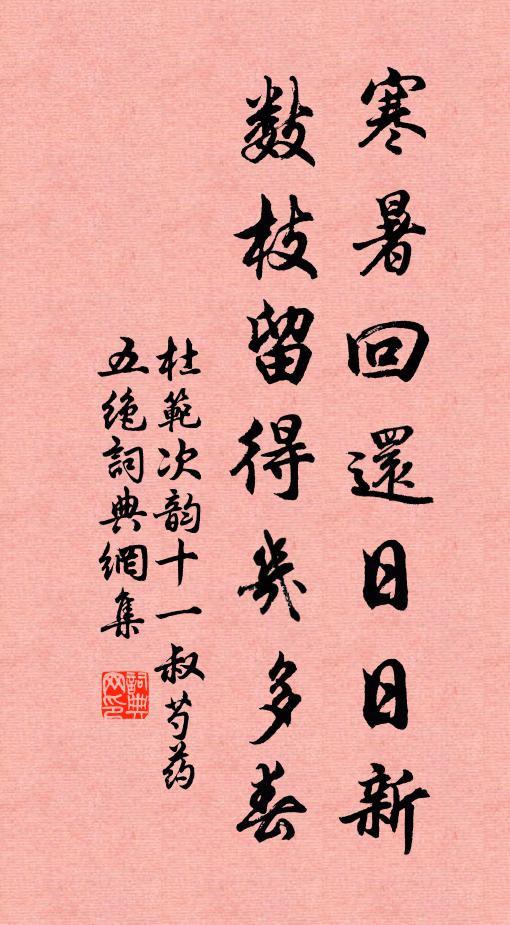 寒暑回還日日新
數枝留得幾多春
杜範次韵十一叔芍药
五绝詞典網集
詞典
网印